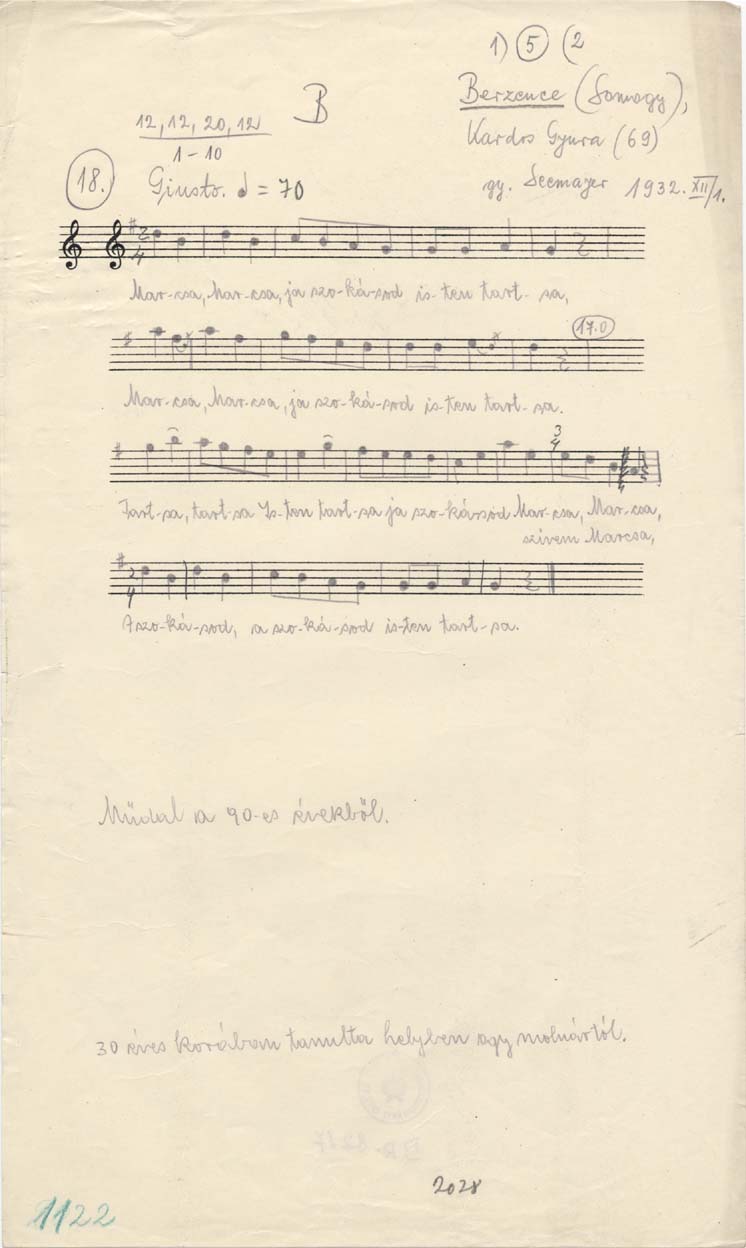 1) 5 (2
B
Berzence (Somogy),
12, 12, 20, 12
1-10
Kardos Gyura (69)
18. Giusto. = 70
gy. Seemayer 1932. XII/1.
2/4
Mar-csa, Mar-csa, ja szo-ká-sod is-ten tart-sa,
17.0
Mar-csa, Mar-csa, ja szo-ká-sod is-ten tart-sa.
3/4
Tart-sa, tart-sa Is-ten tart-sa ja szo-ká-sod Mar-csa, Mar-csa,
szivem Marcsa,
2/4
A szo-ká-sod, a szo-ká-sod is-ten tart-sa.
Müdal a 90-es évekből.
30 éves korában tanulta helyben egy molnártól.
2028
1122